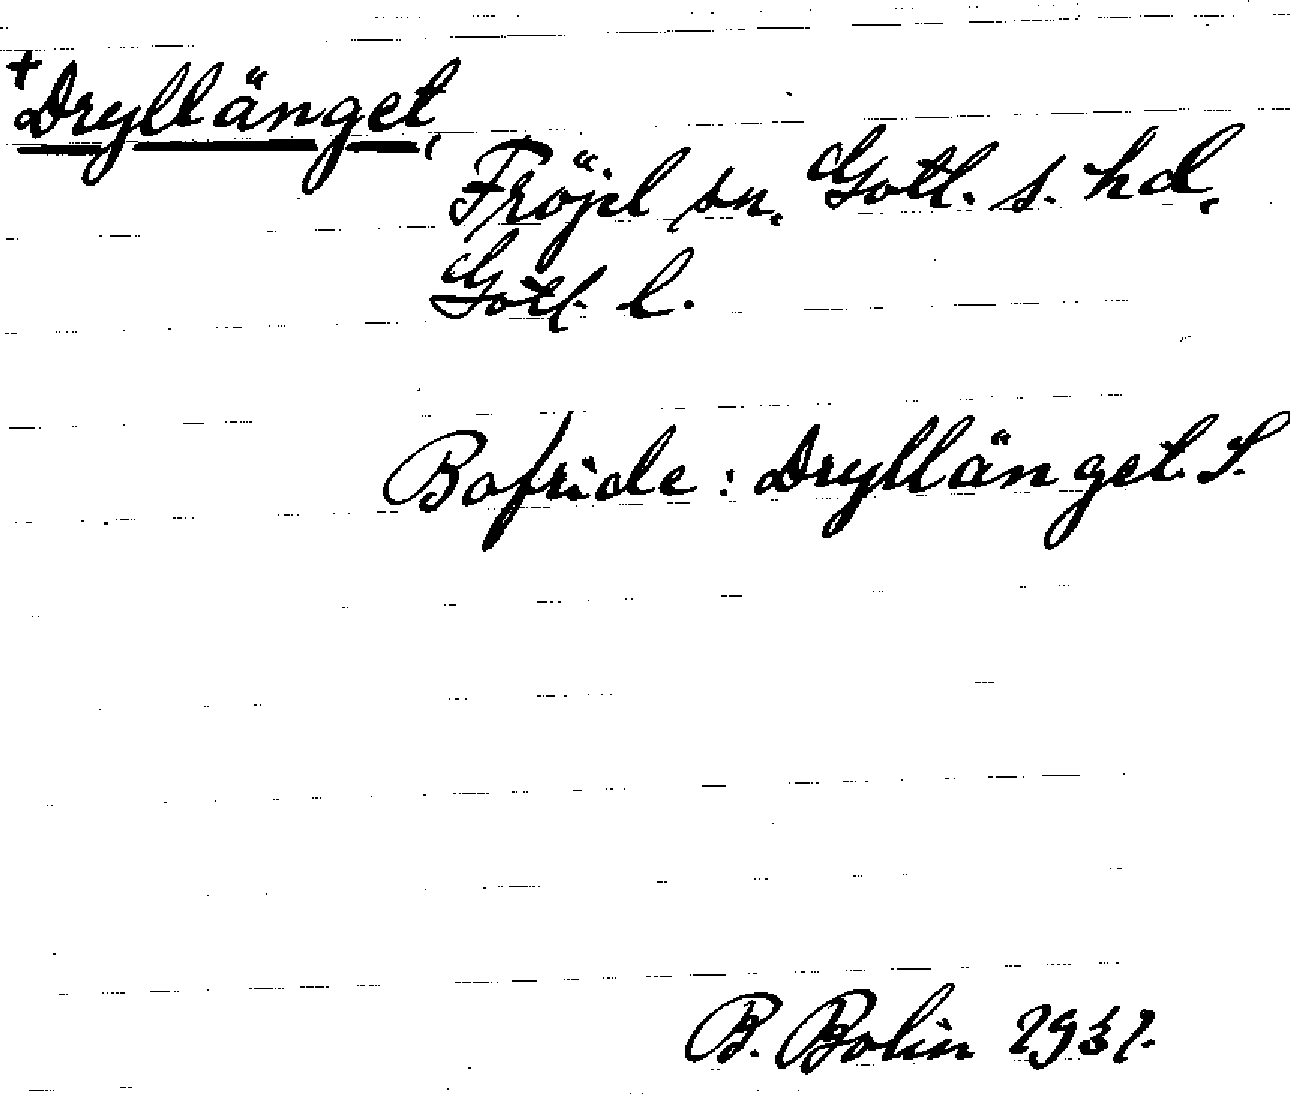 +Dryllänget,
Fröjel sn. Gotl. s. hd.
Gotl. l.
Bofride: Dryllänget. S.
B. Bolin 1931.